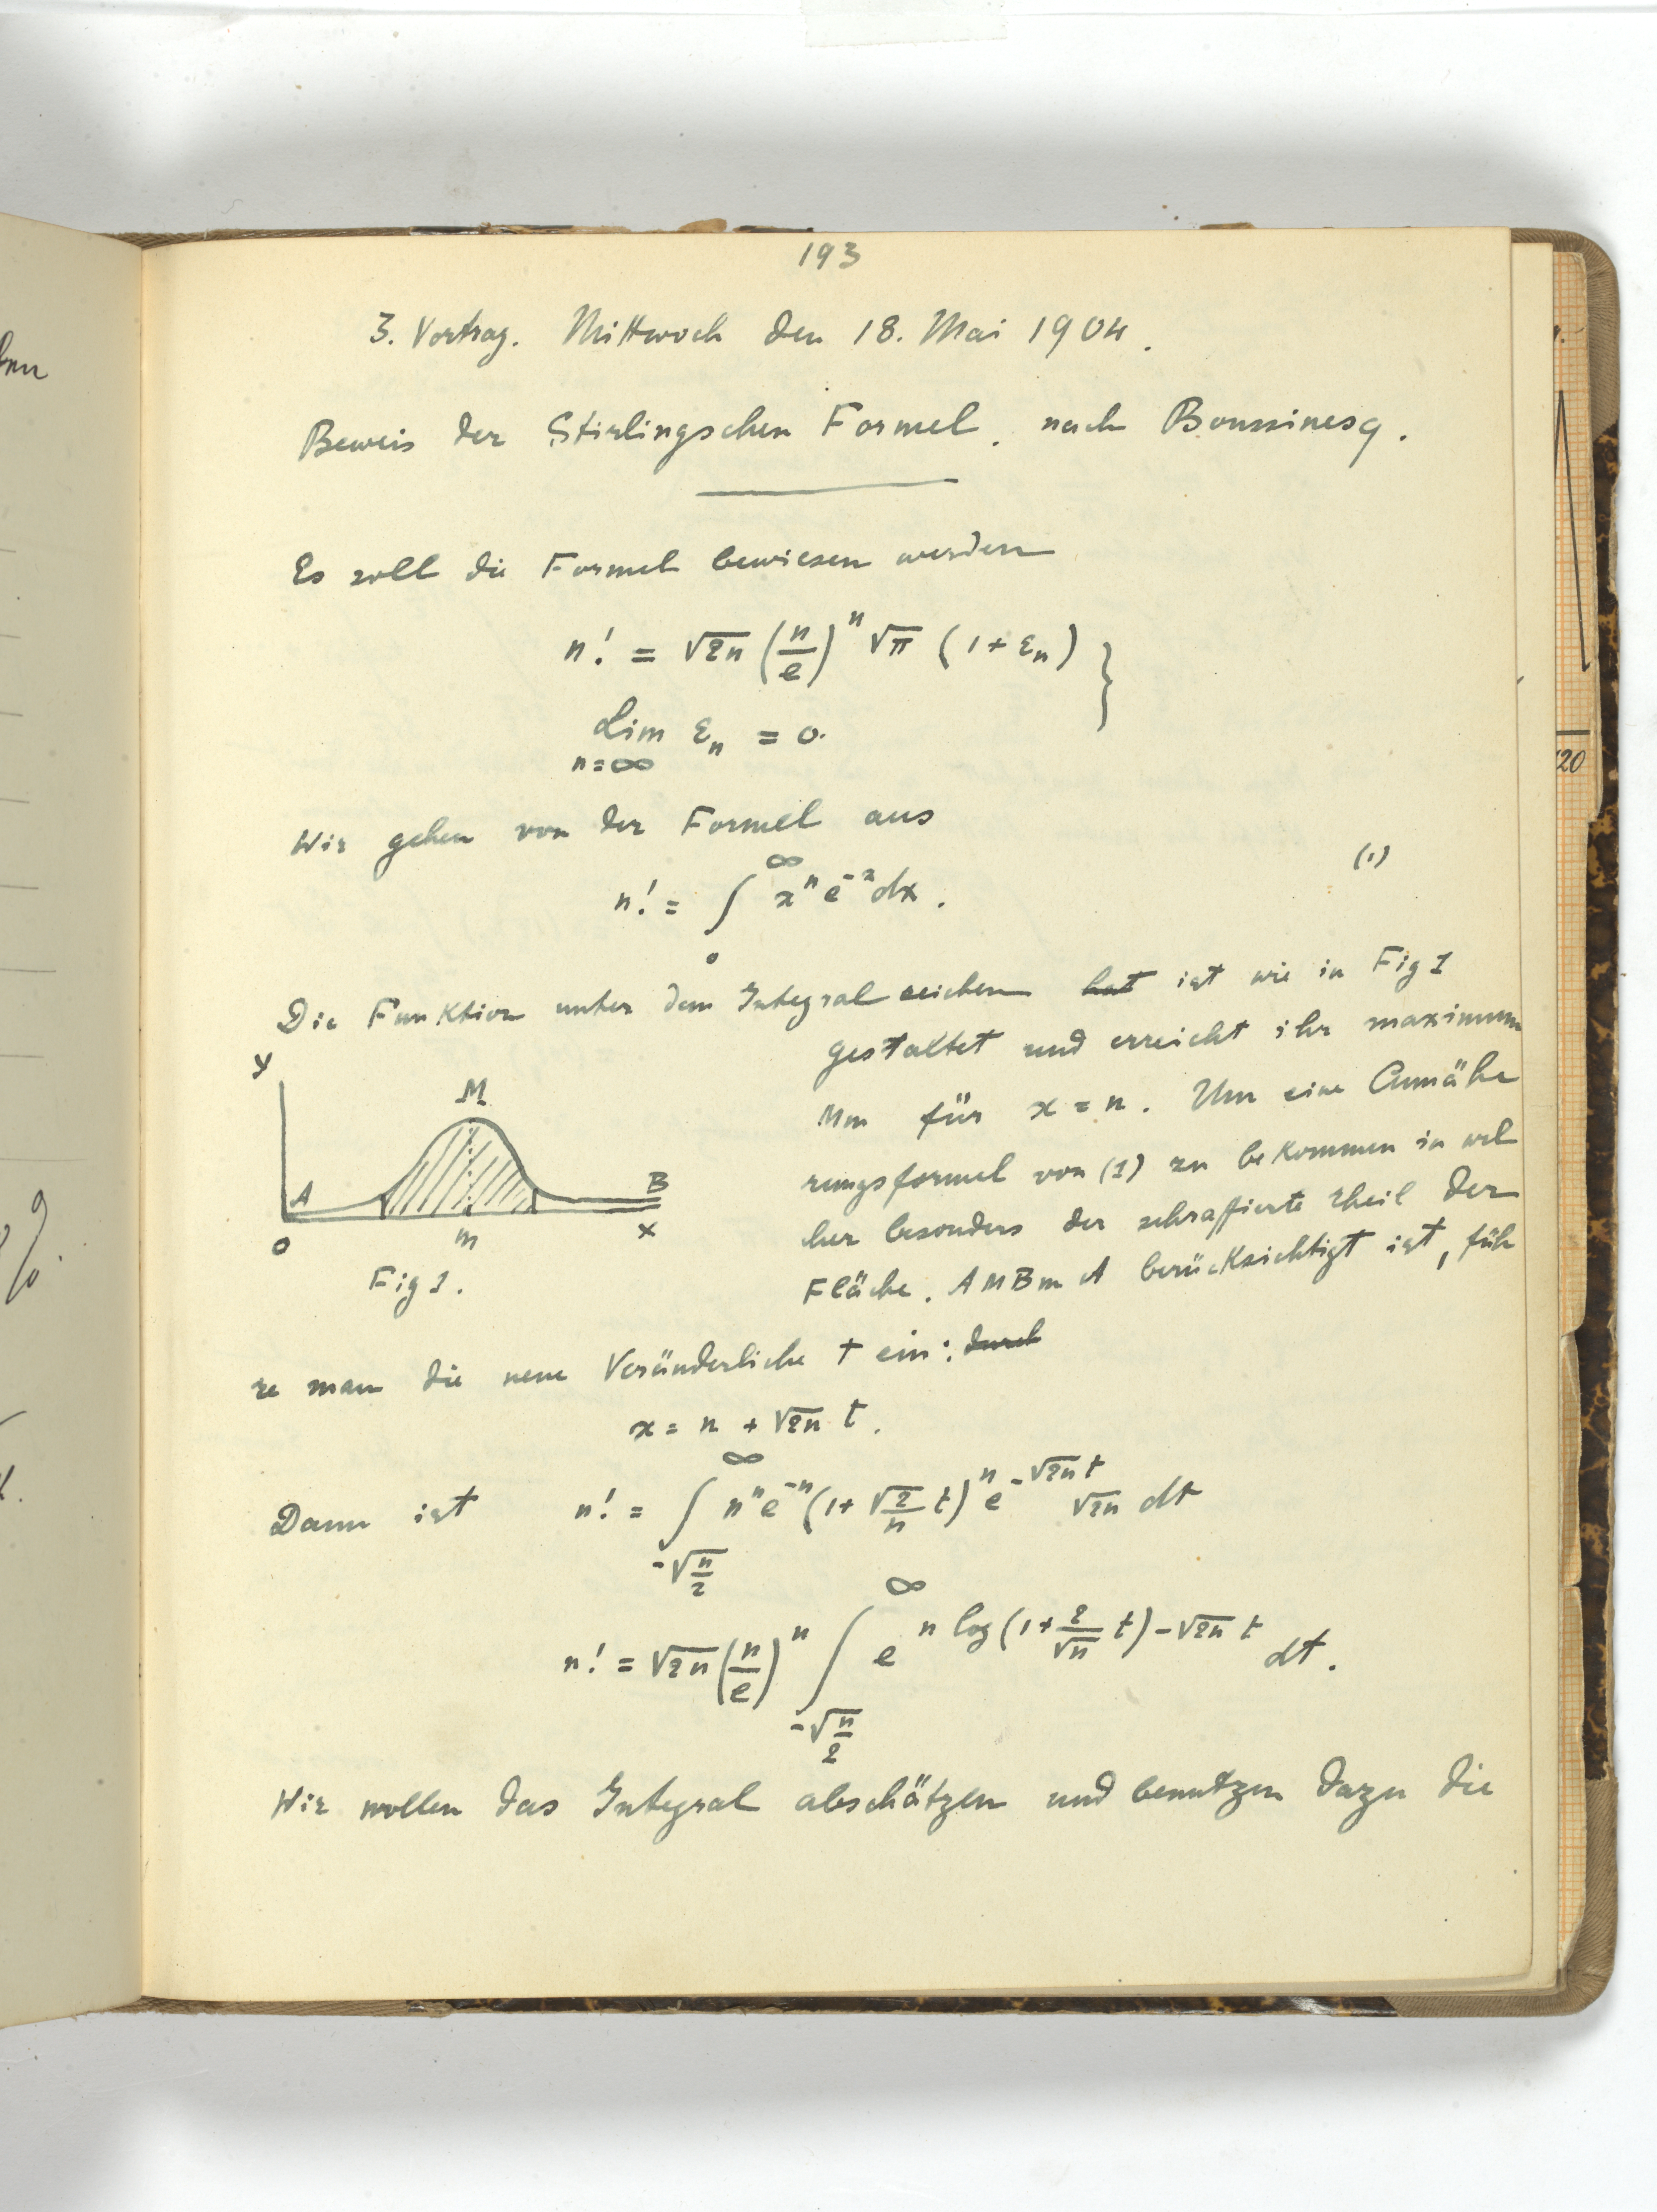 193
3. Vortrag. Mittwoch den 18. Mai 1904.
Beweis der Stirlingschen Formel. nach Boussinesq.
Es soll die Formel bewiesen werden
n! = √2n (n/e)^n √π (1 + ε_n) }
Lim ε_n = 0.
n=∞
Wir gehen von der Formel aus
n! = ∫_0^∞ x^n e^-x dx. (1)
Die Funktion unter dem Integralzeichen hat ist wie in Fig 1
gestaltet und erreicht ihr maximum
Mm für x = n. Um eine Annähe
rungsformel von (1) zu bekommen in wel
cher besonders der schraffierte Theil der
Fläche. AMBmA berücksichtigt ist, füh
y
M
A
B
O
m
x
Fig 1.
re man die neue Veränderliche t ein: durch
x = n + √2n t.
Dann ist n! = ∫_{-√n/2}^∞ n^n e^-n (1 + √2/n t)^n e^{-√2n t} √2n dt
n! = √2n (n/e)^n ∫_{-√n/2}^∞ e^{n log(1 + 2/√n t) - √2n t} dt.
Wir wollen das Integral abschätzen und benutzen dazu die
120